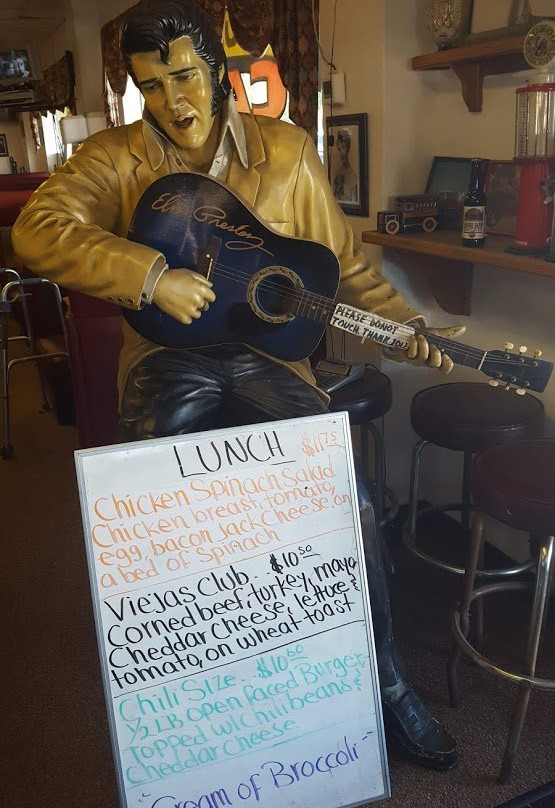 Elvis Presley
PLEASE DO NOT
TOUCH. THANK YOU
LUNCH
$11.75
Chicken Spinach Salad
Chicken breast, tomato,
egg, bacon, Jack Cheese, on
a bed of Spinach
Viejas Club... $10.50
Corned beef, turkey, mayo
Cheddar Cheese, lettuce &
tomato, on wheat toast
Chili Size... $10.50
1/2 LB Open faced Burger
Topped w/ Chili beans &
Cheddar Cheese
"Cream of Broccoli"